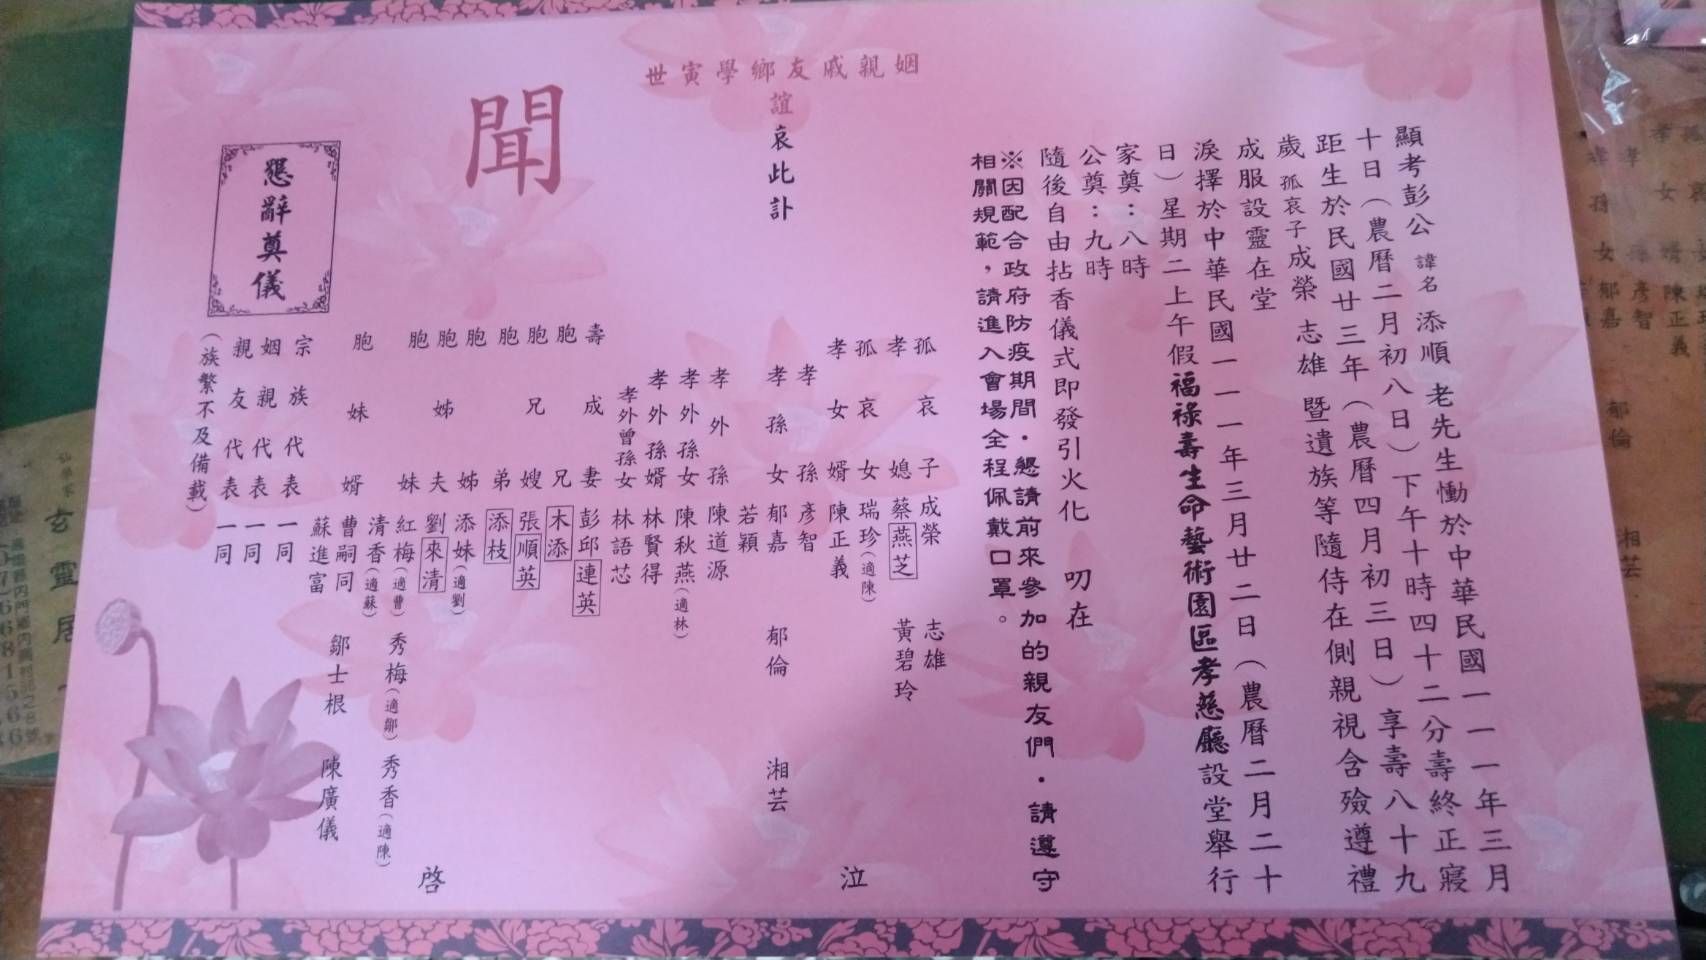 顯考彭公 諱名 添順 老先生慟於中華民國一一一年三月
十日（農曆二月初八日）下午十時四十二分壽終正寢
距生於民國廿三年（農曆四月初三日）享壽八十九
歲 孤哀子成榮 志雄 暨遺族等隨侍在側親視含殮遵禮
成服設靈在堂
淚擇於中華民國一一一年三月廿二日（農曆二月二十
日）星期二上午假福祿壽生命藝術園區孝慈廳設堂舉行
家奠：八時
公奠：九時
隨後自由拈香儀式即發引火化 叨在
※因配合政府防疫期間・懇請前來參加的親友們・請遵守
相關規範，請進入會場全程佩戴口罩。
姻親戚友鄉學寅世
誼哀此訃
聞
孤哀子 成榮 志雄
孝媳 蔡燕芝 黃碧玲
孤哀女 瑞珍（適陳）
孝女婿 陳正義
泣
孝孫 彥智
孝孫女 郁嘉 郁倫 湘芸
若穎
孝外孫 陳道源
孝外孫女 陳秋燕（適林）
孝外孫婿 林賢得
孝外曾孫女 林語芯
壽成妻 彭邱連英
胞兄 木添
胞兄嫂 張順英
胞弟 添枝
胞姊 添妹（適劉）
胞姊夫 劉來清
胞妹 紅梅（適曹） 秀梅（適鄒） 秀香（適陳）
清香（適蘇）
胞妹婿 曹嗣同 鄒士根 陳廣儀
蘇進富
啓
宗族代表一同
姻親代表一同
親友代表一同
（族繁不及備載）
懇辭奠儀